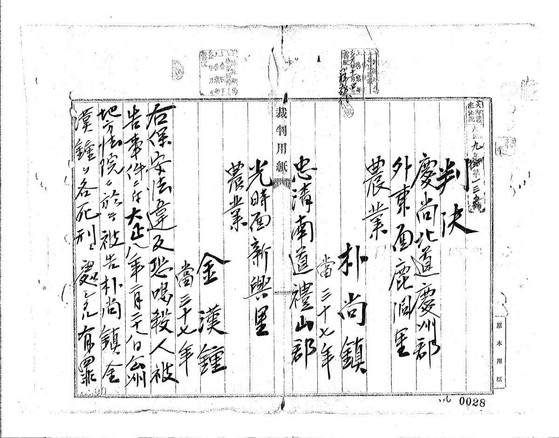 判決
慶尚北道慶州郡
外東面鹿洞里
農業
朴尚鎮
當三十七年
裁判用紙
忠清南道禮山郡
光時面新興里
農業
金漢鍾
當三十七年
右保安法違反恐喝殺人被
告事件ニ付大正八年二月二十八日公州
地方法院ニ於テ被告朴尚鎮金
漢鍾ヲ各死刑ニ處シタル有罪
原本用紙
0028